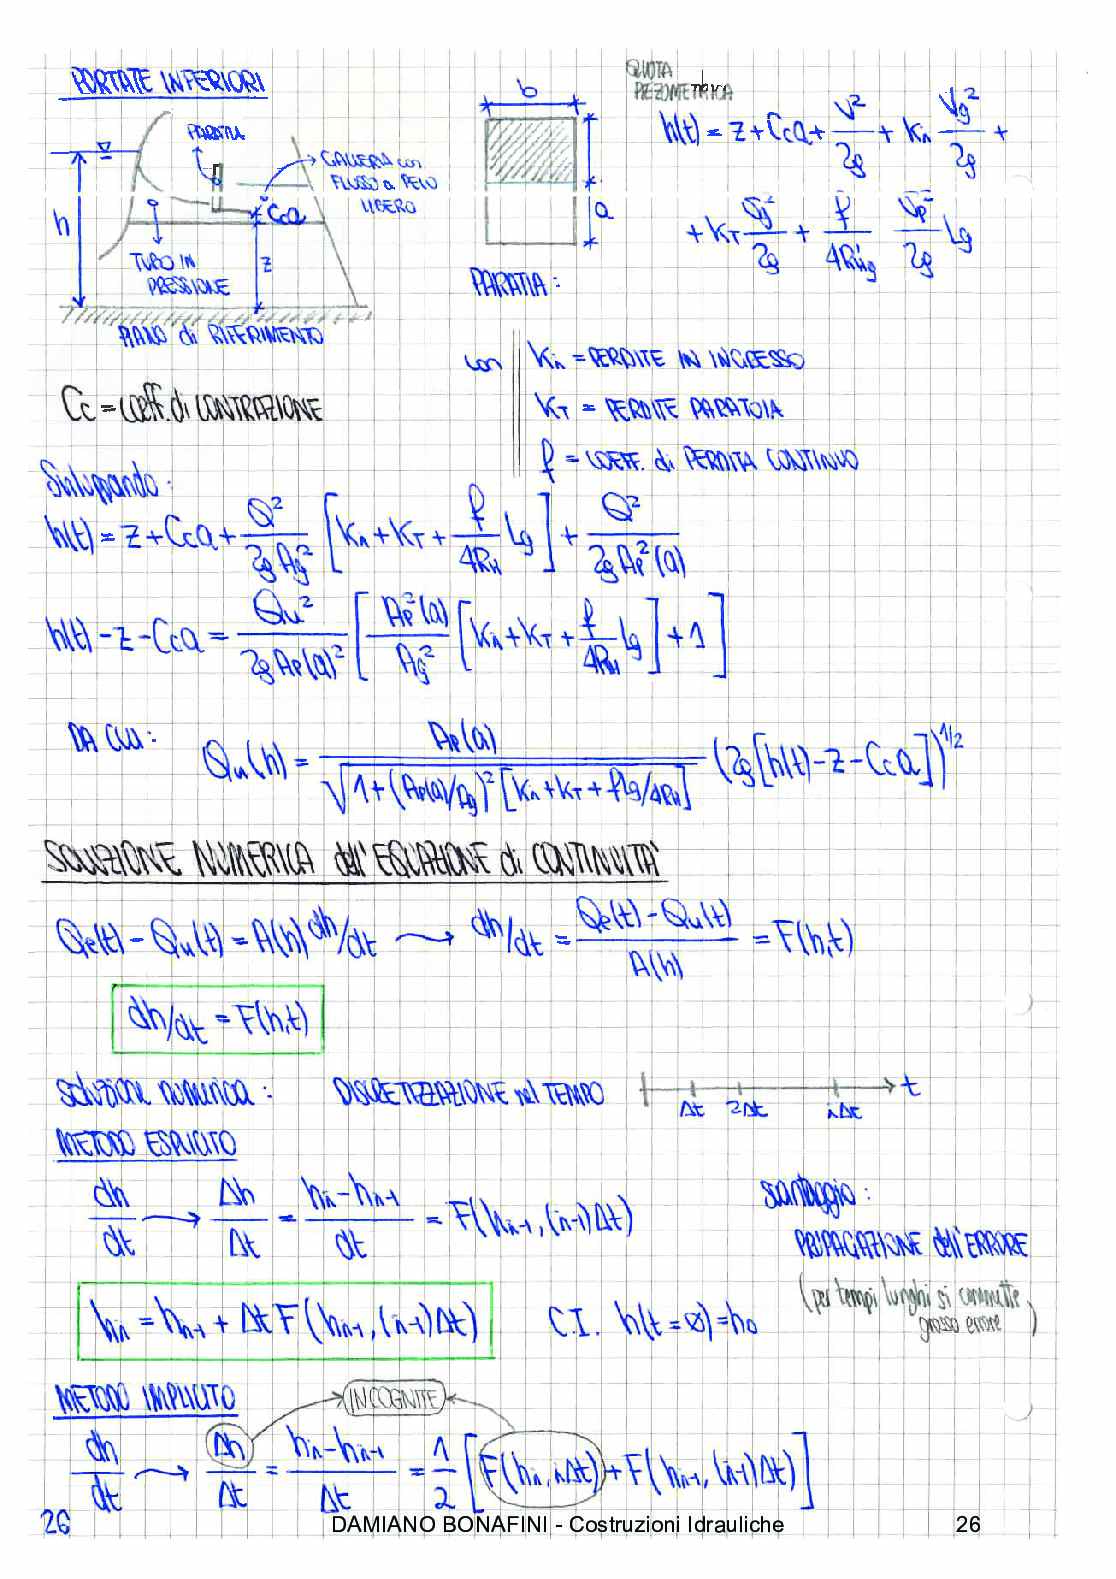 PORTATE INFERIORI
PARATIA
GALLERIA con
FLUSSO a PELO
LIBERO
h
Cca
z
TUBO IN
PRESSIONE
PIANO di RIFERIMENTO
b
a
PARATIA :
QUOTA
PIEZOMETRICA
h(t) = z + Cca + V²/2g + Ki Vg²/2g +
+ KT Vg²/2g + f/4RHg Vg²/2g Lg
con
Ki = PERDITE IN INGRESSO
KT = PERDITE PARATOIA
f = COEFF. di PERDITA CONTINUO
Cc = Coeff. di CONTRAZIONE
Sviluppando :
h(t) = z + Cca + Q²/2gAg² [Ki + KT + f/4RH Lg] + Q²/2gAp²(a)
h(t) - z - Cca = Qu²/2gAp(a)² [Ap²(a)/Ag² [Ki + KT + f/4RH Lg] + 1]
DA CUI :
Qu(h) = Ap(a)/√1+(Ap(a)/Ag)²[Ki+KT+fLg/4RH] (2g[h(t)-z-Cca])^1/2
SOLUZIONE NUMERICA dell' EQUAZIONE di CONTINUITA'
Qe(t) - Qu(t) = A(h) dh/dt → dh/dt = Qe(t) - Qu(t)/A(h) = F(h,t)
dh/dt = F(h,t)
soluzione numerica : DISCRETIZZAZIONE nel TEMPO
Δt 2Δt iΔt t
METODO ESPLICITO
dh/dt → Δh/Δt = hi - hi-1/dt = F(hi-1, (i-1)Δt)
svantaggio :
PROPAGAZIONE dell'ERRORE
(per tempi lunghi si commette
grosso errore)
hi = hi-1 + Δt F(hi-1, (i-1)Δt)
C.I. h(t=Ø)=h0
METODO IMPLICITO
INCOGNITE
dh/dt → Δh/Δt = hi - hi-1/Δt = 1/2 [F(hi, iΔt) + F(hi-1, (i-1)Δt)]
26
DAMIANO BONAFINI - Costruzioni Idrauliche
26